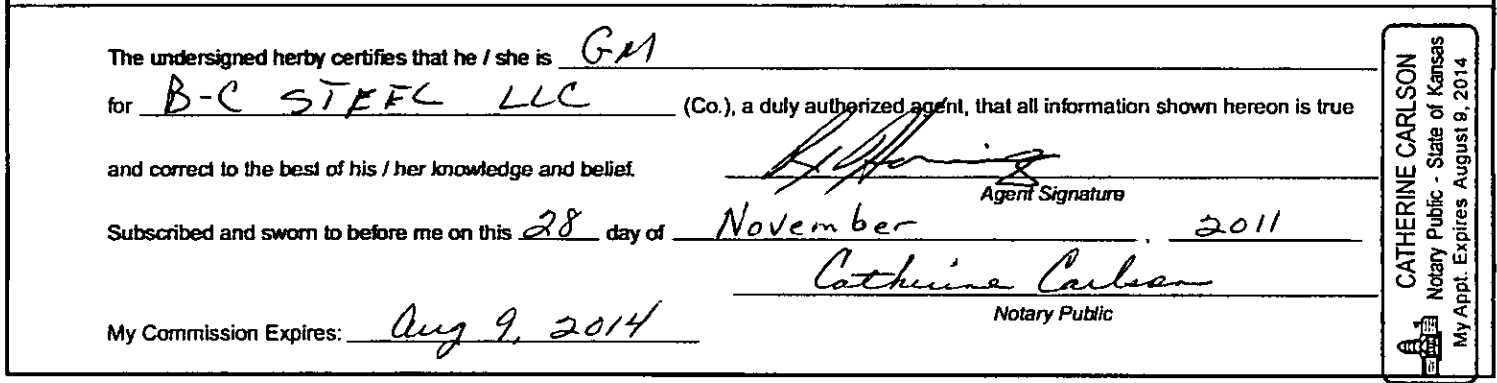 The undersigned herby certifies that he / she is GM
for B-C STEEL LLC (Co.), a duly authorized agent, that all information shown hereon is true
and correct to the best of his / her knowledge and belief.
Agent Signature
Subscribed and sworn to before me on this 28 day of November , 2011
Catherine Carlson
Notary Public
My Commission Expires: Aug 9, 2014
CATHERINE CARLSON
Notary Public - State of Kansas
My Appt. Expires August 9, 2014